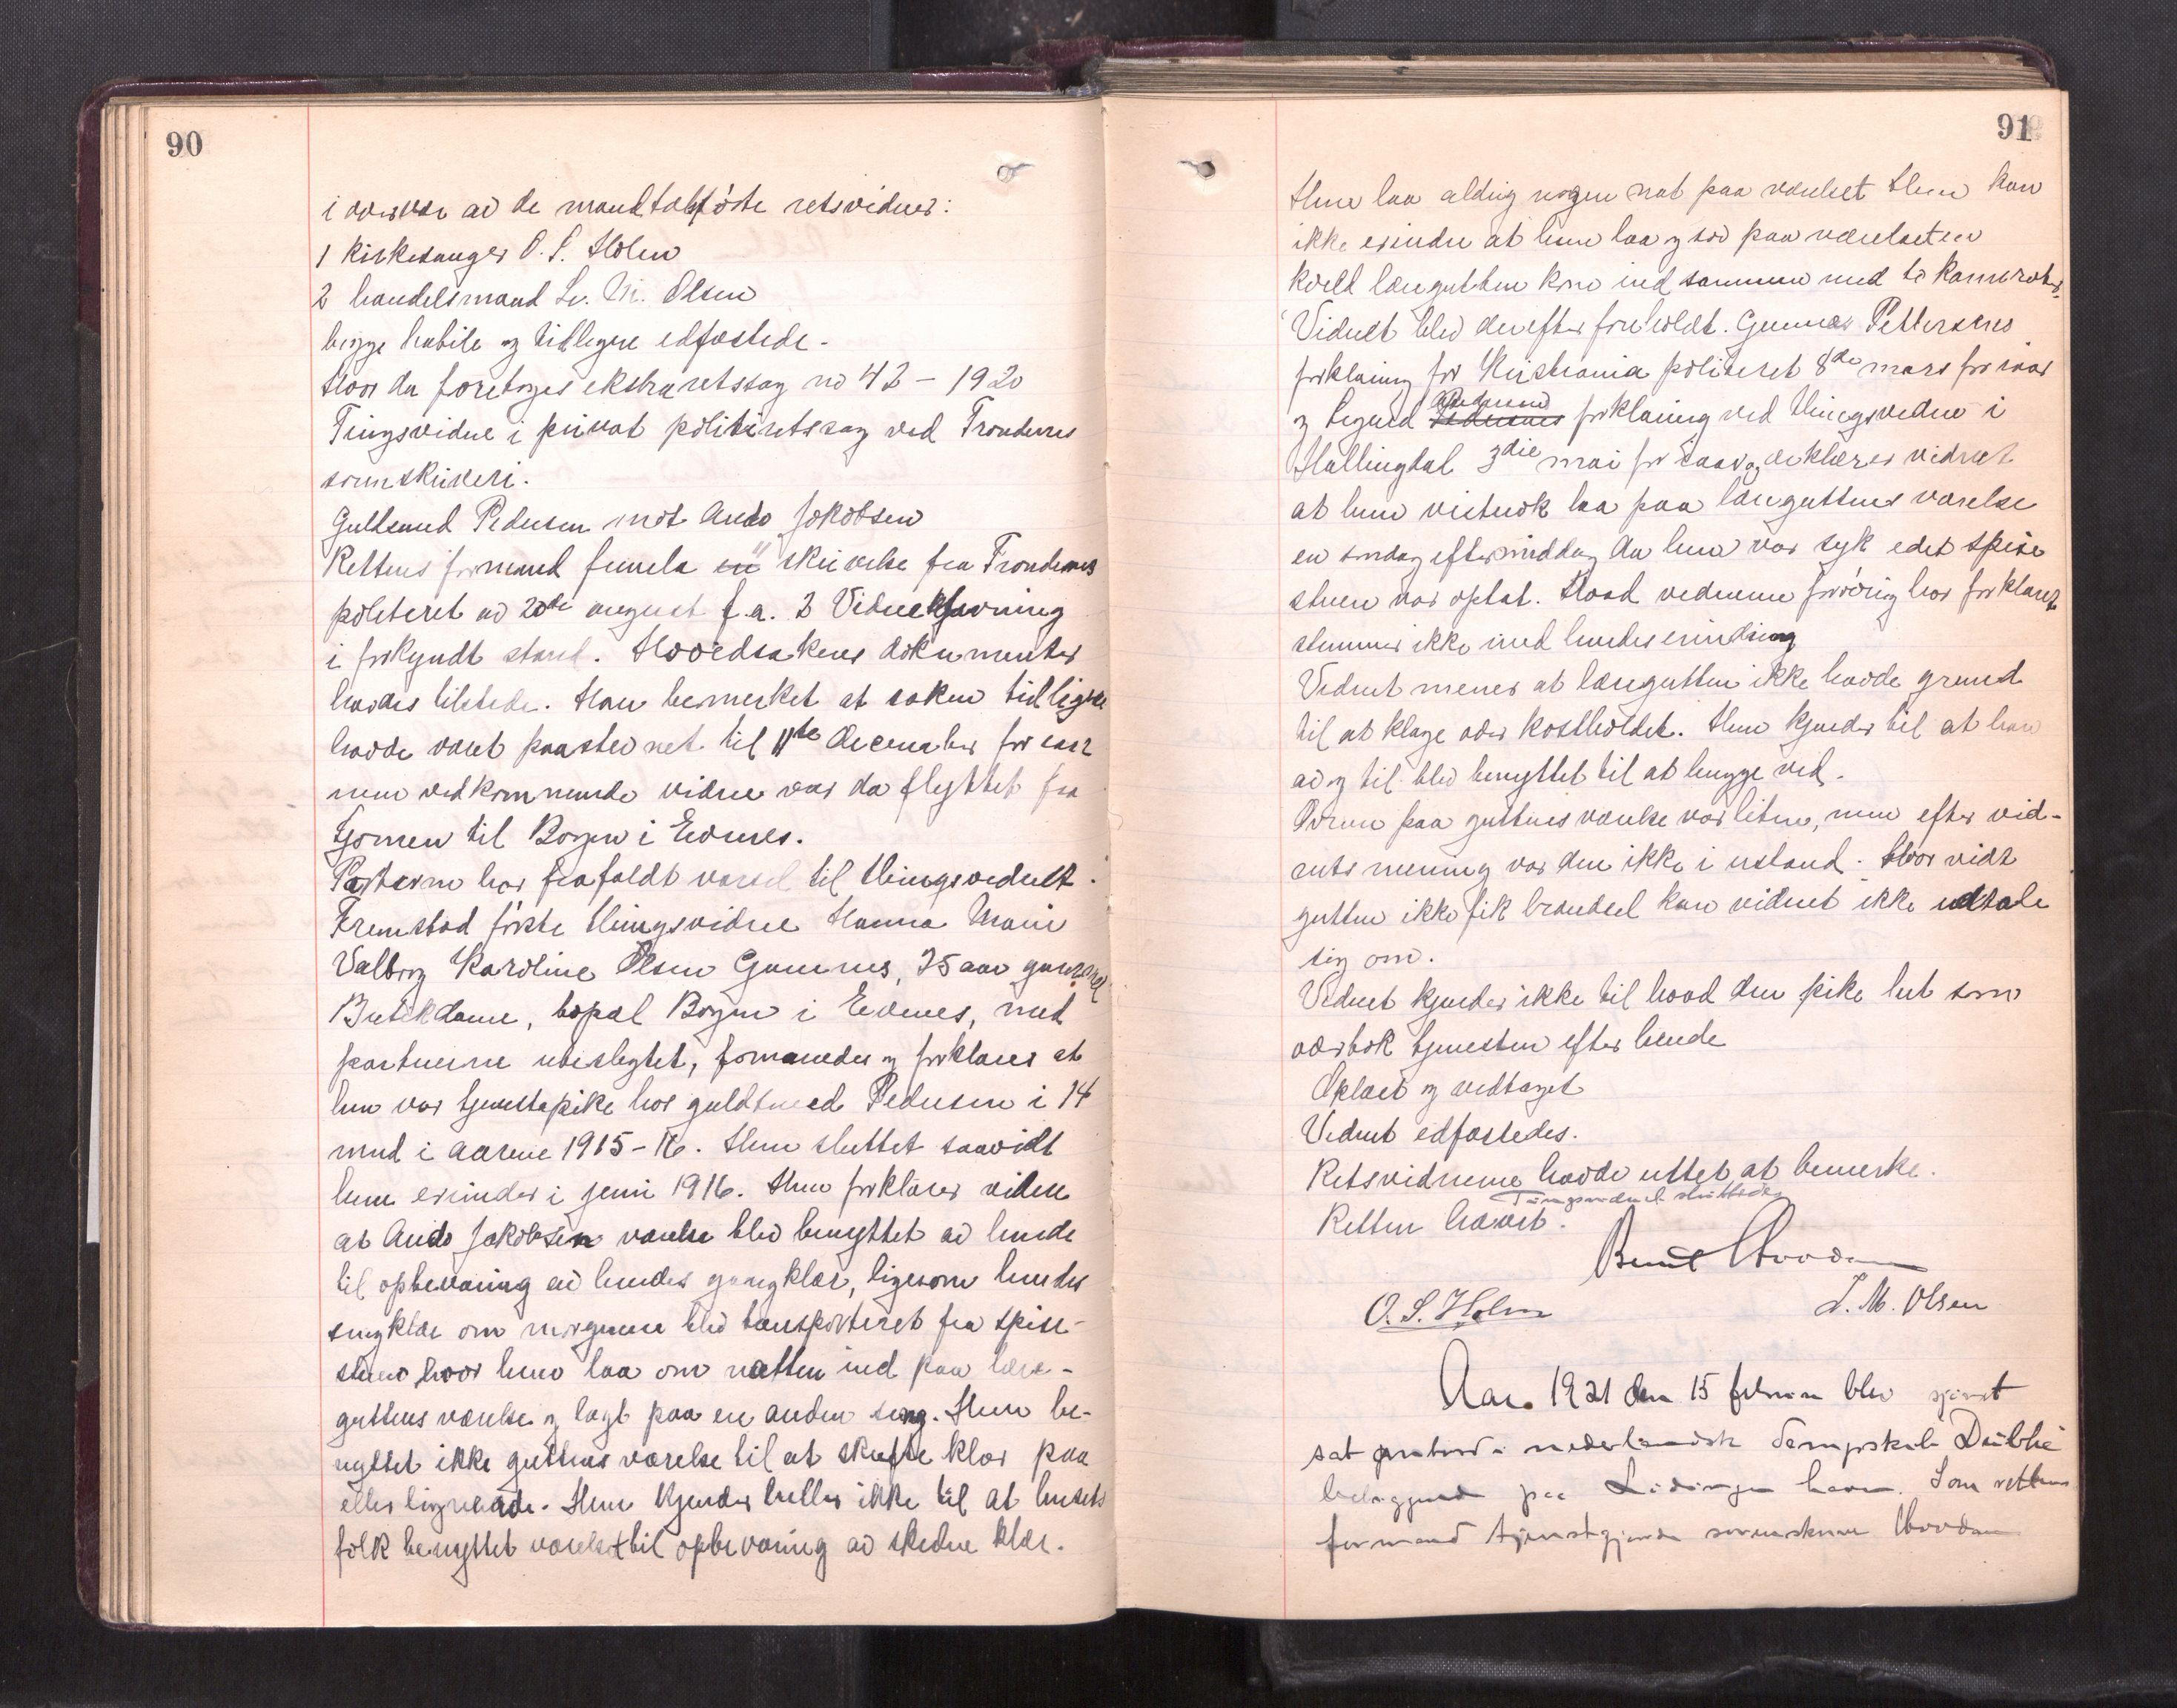 90
i overvær av de mandtalsførte retsvidner:
1 Kirkesanger O. S. Holm
2 handelsmand L. M. Olsen
begge habile og tidligere edfæstede.
Hvor da foretoges ekstraretssag no 42 – 1920
Tingsvidne i privat politiretssag ved Trondenes
sorenskriveri.
Guldsmed Pedersen mot Ando Jakobsen
Rettens formand fremla en skrivelse fra Trondenes
politiret av 20de august f.a. 2 Vidnestevning
i forkyndt stand. Hovedsakens dokumenter
havdes tilstede. Han bemerket at saken tidligere
havde været paastevnet til 11te december for iaar
men vedkommende vidne var da flyttet fra
til Bogen i Evenes.
Parterne har frafaldt varsel til thingsvidnet.
Fremstod første thingsvidne Hanna Marie
Valborg Karoline Olsen Gamnes, 25 aar gammel
Butikdame, bopæl Bogen i Evenes, med
parterne ubeslegtet, formanedes og forklarer at
hun var tjenestepike hos guldsmed Pedersen i 14
mnd i aarene 1915–16. Hun sluttet saavidt
hun erindrer i juni 1916. Hun forklarer videre
at Ando Jakobsen værelse blev benyttet av hende
til opbevaring av hendes gangklær, ligesom hendes
sengklær om morgenen blev transporteret fra spise-
stuen hvor hun laa om natten ind paa lære-
guttens værelse og lagt paa en anden seng. Hun be-
nyttet ikke guttens værelse til at skifte klær paa
eller lignende. Hun kjender heller ikke til at husets
folk benyttet værelset til opbevaring av skidne klær.
91
Hun laa aldrig nogen nat paa værelset Hun kan
ikke erindre at hun laa og sov paa værelset en
kveld læregutten kom ind sammen med to kamerater.
Vidnet blev derefter foreholdt Gunnar Pettersens
forklaring for Kristiania politiret 8de mars for iaar
og Sigurd Pedersens Andersens forklaring ved thingsvidne i
Hallingdal 3die mai for iaar og erklærer vidnet
at hun vistnok laa paa læreguttens værelse
en søndag eftermiddag da hun var syk idet spise
stuen var optat. Hvad vidnerne forøvrig har forklaret
stemmer ikke med hendes erindring
Vidnet mener at læregutten ikke havde grund
til at klage over kostholdet. Hun kjender til at han
av og til blev benyttet til at hugge ved.
Ovnen paa guttens værelse var liten, men efter vid-
nets mening var den ikke i ustand. Hvorvidt
gutten ikke fik brændsel kan vidnet ikke udtale
sig om.
Vidnet kjender ikke til hvad den pike het som
overtok tjenesten efter hende
Oplæst og vedtaget
Vidnet edfæstedes.
Retsvidnerne havde intet at bemerke.
Tingsvidnet sluttedes
Retten hævet.
O. S. Holm
L. M. Olsen
Aar 1921 den 15 februar blev sjøret
sat ombord i nederlandsk dampskib
beliggende paa Lødingen havn. Som rettens
formand tjenestgjorde sorenskriver